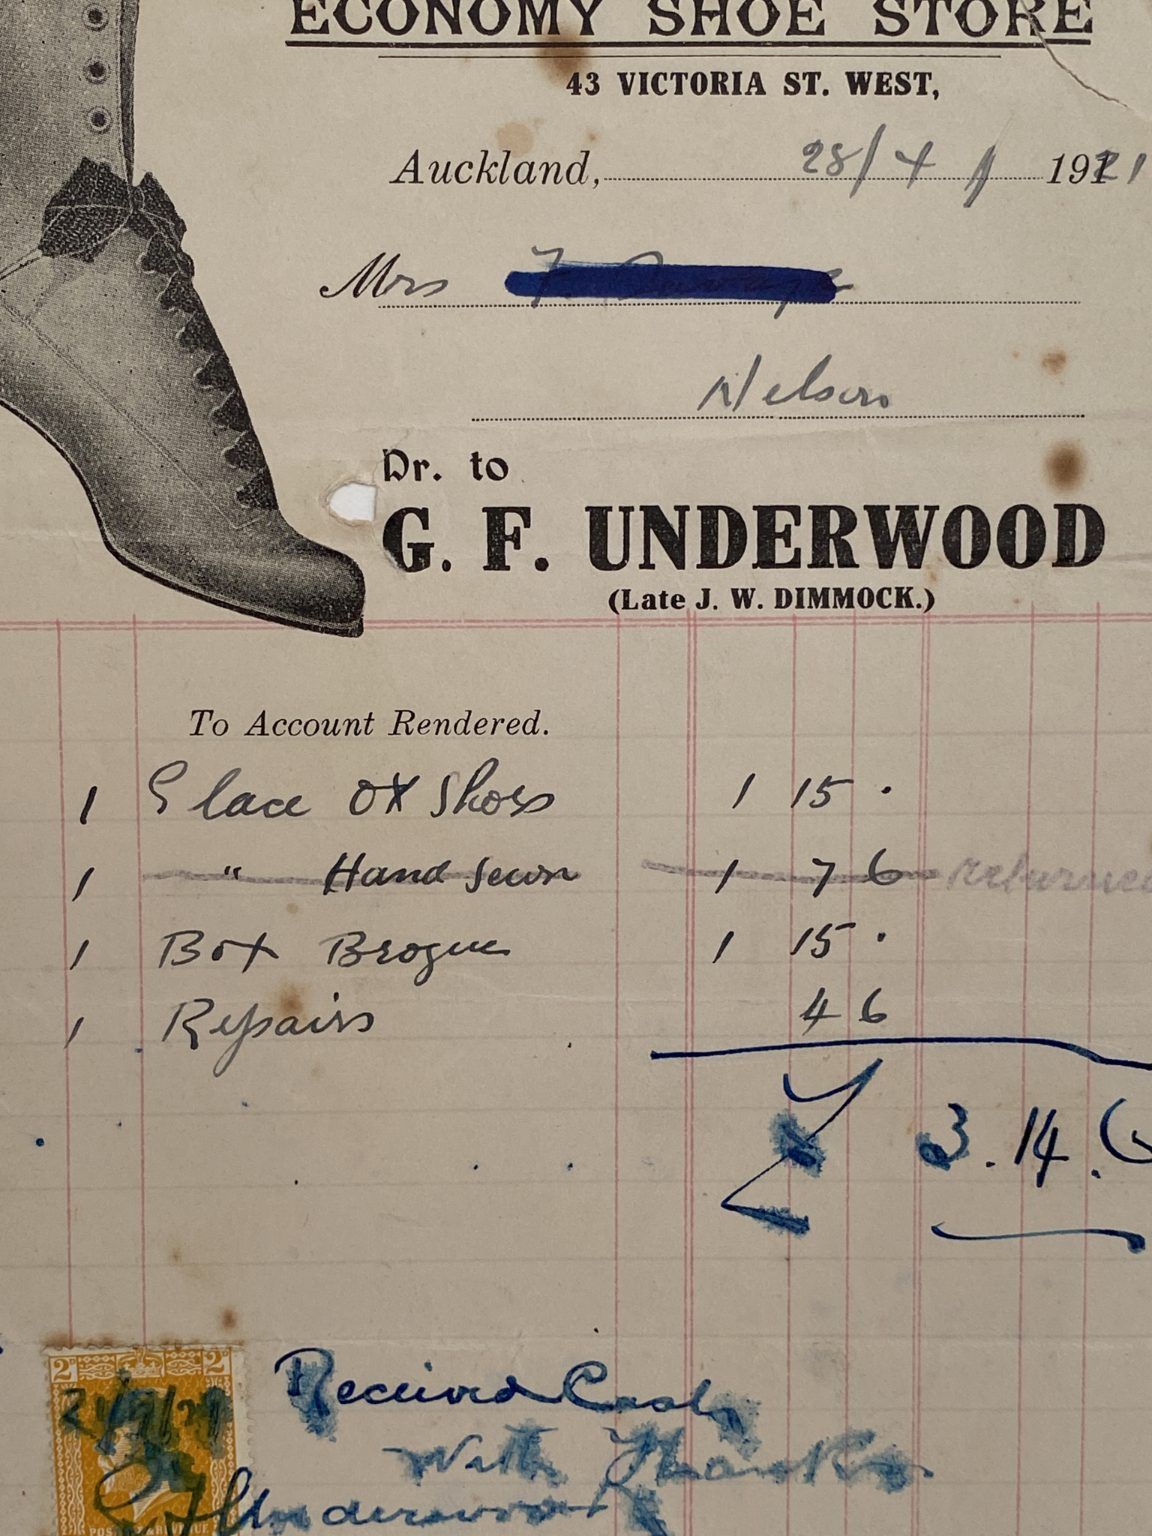 ECONOMY SHOE STORE
43 VICTORIA ST. WEST,
Auckland, 28/4/ 1921
Mrs F.
Nelson
Dr. to
G. F. UNDERWOOD
(Late J. W. DIMMOCK.)
To Account Rendered.
1 Glace OX Shoes 1 15 .
1 " Hand Sewn 1 7 6 returned
1 Box Brogue 1 15 .
1 Repairs 4 6
3.14.6
2D 2D
Received Cash
With Thanks
Underwood
POSTAGE & REVENUE